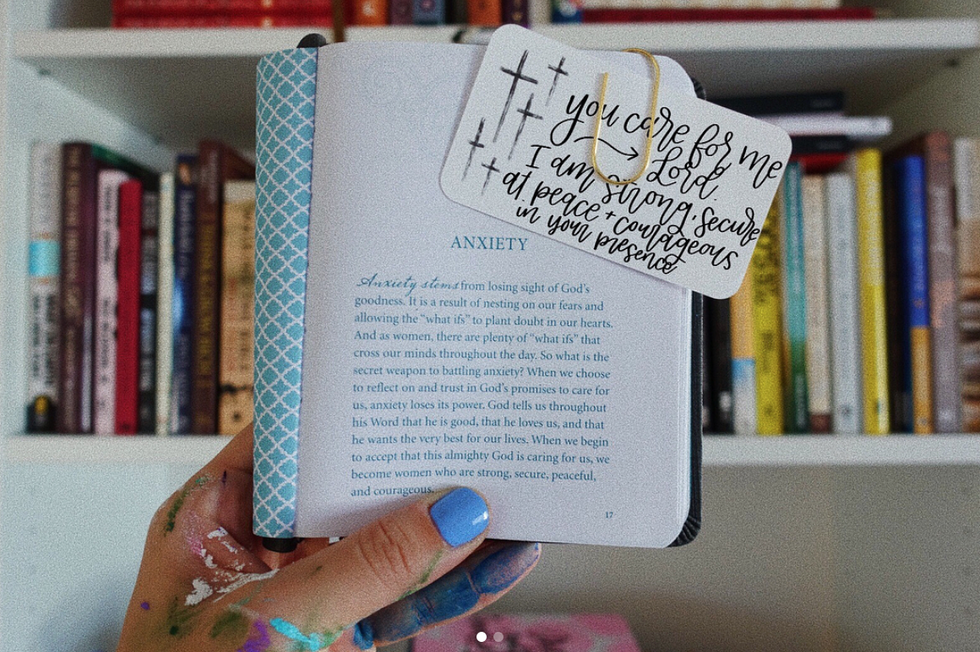 you care for me
Lord.
I am strong, secure
at peace + courageous
in your presence
ANXIETY
Anxiety stems from losing sight of God's
goodness. It is a result of nesting on our fears and
allowing the “what ifs” to plant doubt in our hearts.
And as women, there are plenty of “what ifs” that
cross our minds throughout the day. So what is the
secret weapon to battling anxiety? When we choose
to reflect on and trust in God's promises to care for
us, anxiety loses its power. God tells us throughout
his Word that he is good, that he loves us, and that
he wants the very best for our lives. When we begin
to accept that this almighty God is caring for us, we
become women who are strong, secure, peaceful,
and courageous.
17